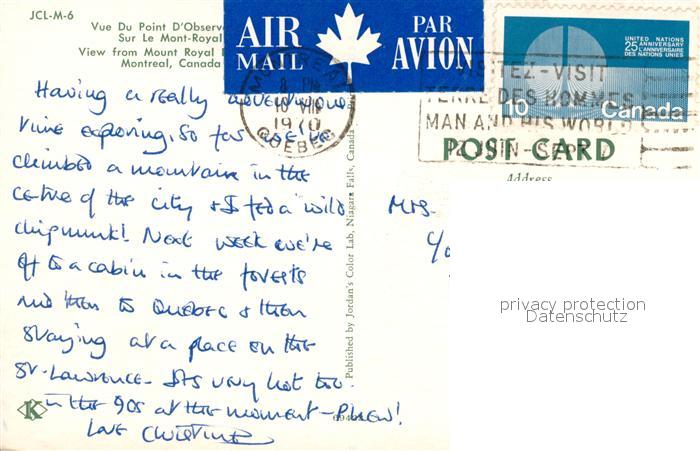 JCL-M-6
Vue Du Point D'Observ
Sur Le Mont-Royal
View from Mount Royal
Montreal, Canada
AIR MAIL
PAR AVION
MONTREAL
8 PM
10 VIII
1970
QUEBEC
VISITEZ-VISIT
TERRE DES HOMMES
MAN AND HIS WORLD
12 JUIN-SEPT 7
UNITED NATIONS
25th ANNIVERSARY
L'ANNIVERSAIRE
DES NATIONS UNIES
15
Canada
POST CARD
Address
Having a really adventurous
time exploring. So far we've
climbed a mountain in the
centre of the city & I fed a wild
chipmunk! Next week we're
off to a cabin in the forests
and then to Quebec & then
staying at a place on the
St. Lawrence. It's very hot too.
in the 90s at the moment - Phew!
Love Christine
Mrs.
c/o
Published by Jordan's Color Lab, Niagara Falls, Canada
K
privacy protection
Datenschutz